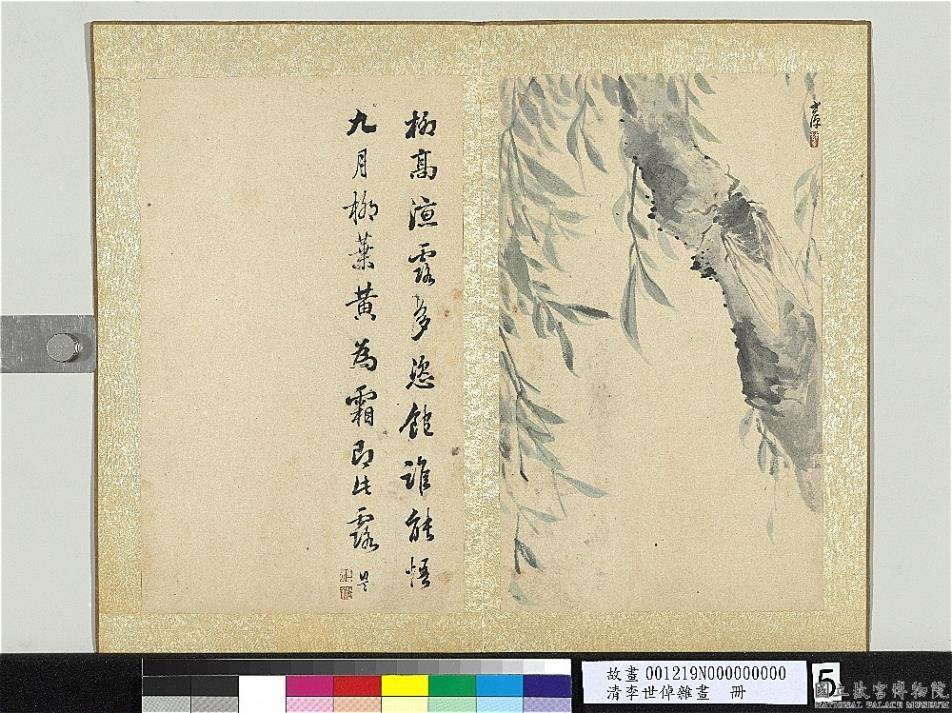 柳高湎露多恣飽誰能悟
九月柳葉黃為霜即此露
故畫 001219N000000000
清李世倬雜畫 冊
5
國立故宮博物院
NATIONAL PALACE MUSEUM